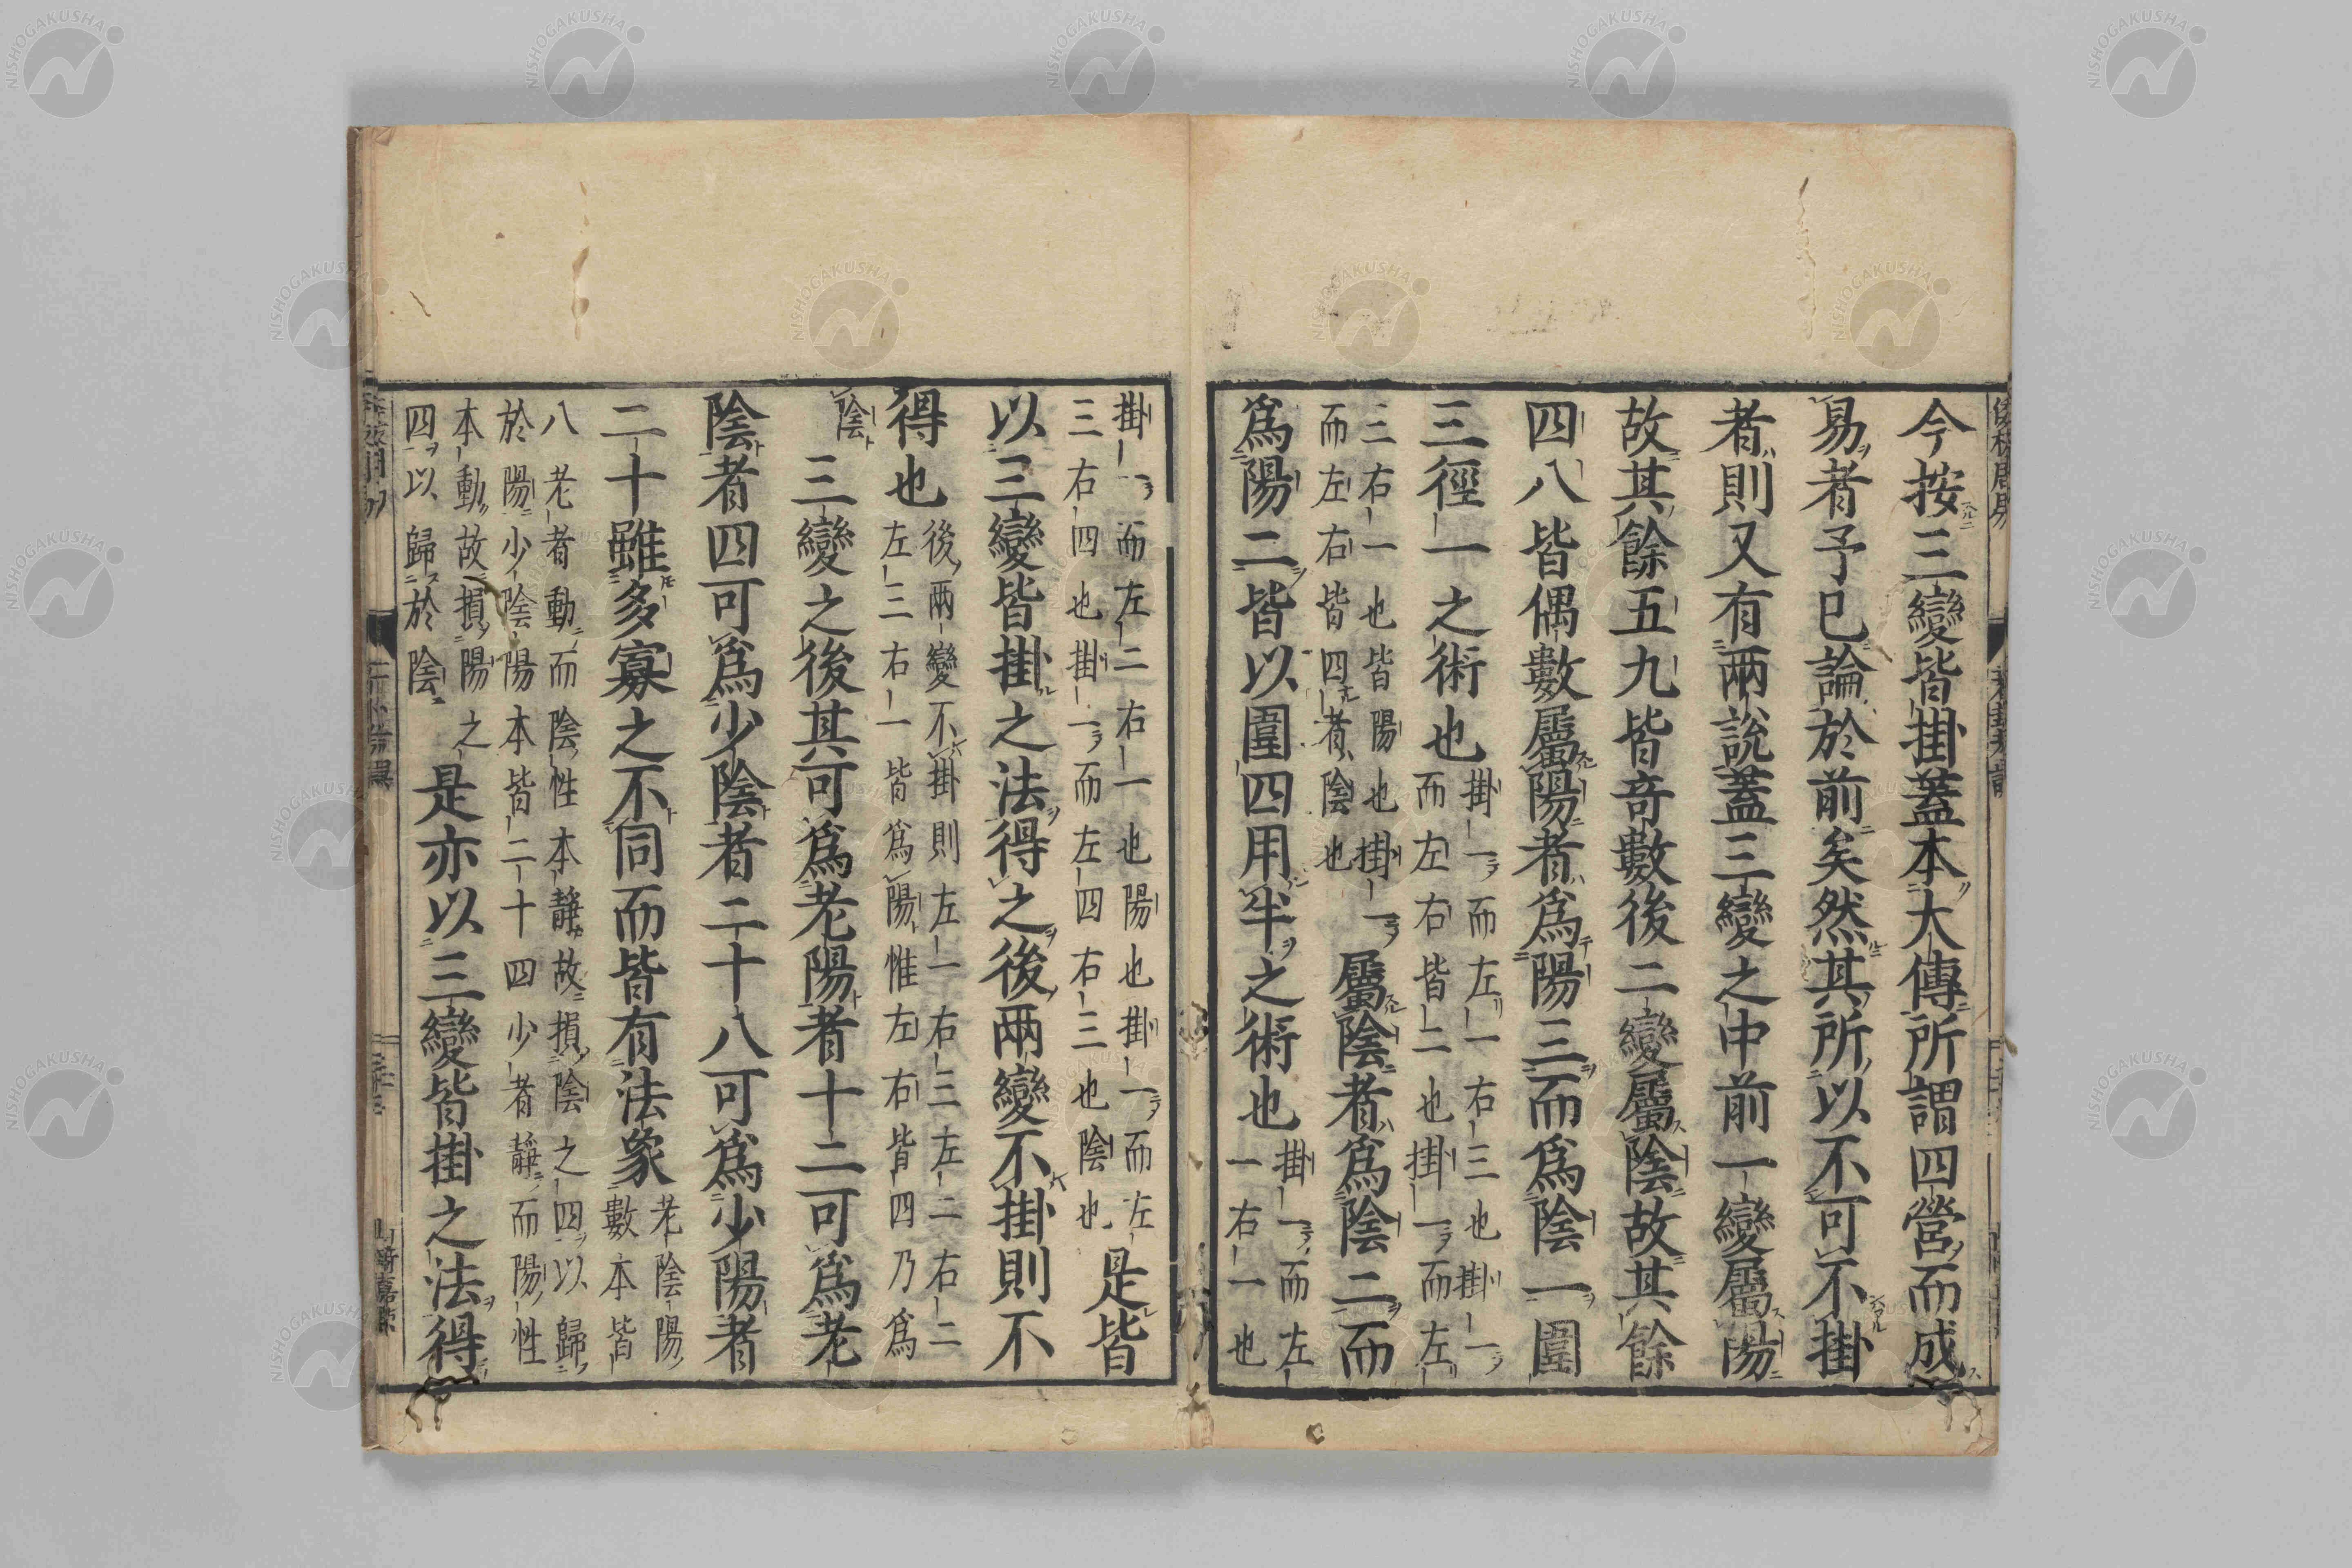 今按三變皆掛蓋本大傳所謂四營而成
易者予已論於前矣然其所以不可不掛
者則又有兩說蓋三變之中前一變屬陽
故其餘五九皆奇數後二變屬陰故其餘
四八皆偶數屬陽者爲陽三而爲陰一圍
三徑一之術也
掛一而左一右三也掛一
而左右皆二也掛一而左
三右一也皆陽也掛一
而左右皆四者陰也
屬陰者爲陰二而
爲陽二皆以圍四用半之術也
掛一而左
一右一也
掛一而左二右一也陽也掛一而左
三右四也掛一而左四右三也陰也
是皆
以三變皆掛之法得之後兩變不掛則不
得也
後兩變不掛則左一右三左二右二
左三右一皆爲陽惟左右皆四乃爲
陰
三變之後其可爲老陽者十二可爲老
陰者四可爲少陰者二十八可爲少陽者
二十雖多寡之不同而皆有法象
老陰陽
數本皆
八老者動而陰性本靜故損陰之四以歸
於陽少陰陽本皆二十四少者靜而陽性
本動故損陽之
四以歸於陰
是亦以三變皆掛之法得
NISHOGAKUSHA